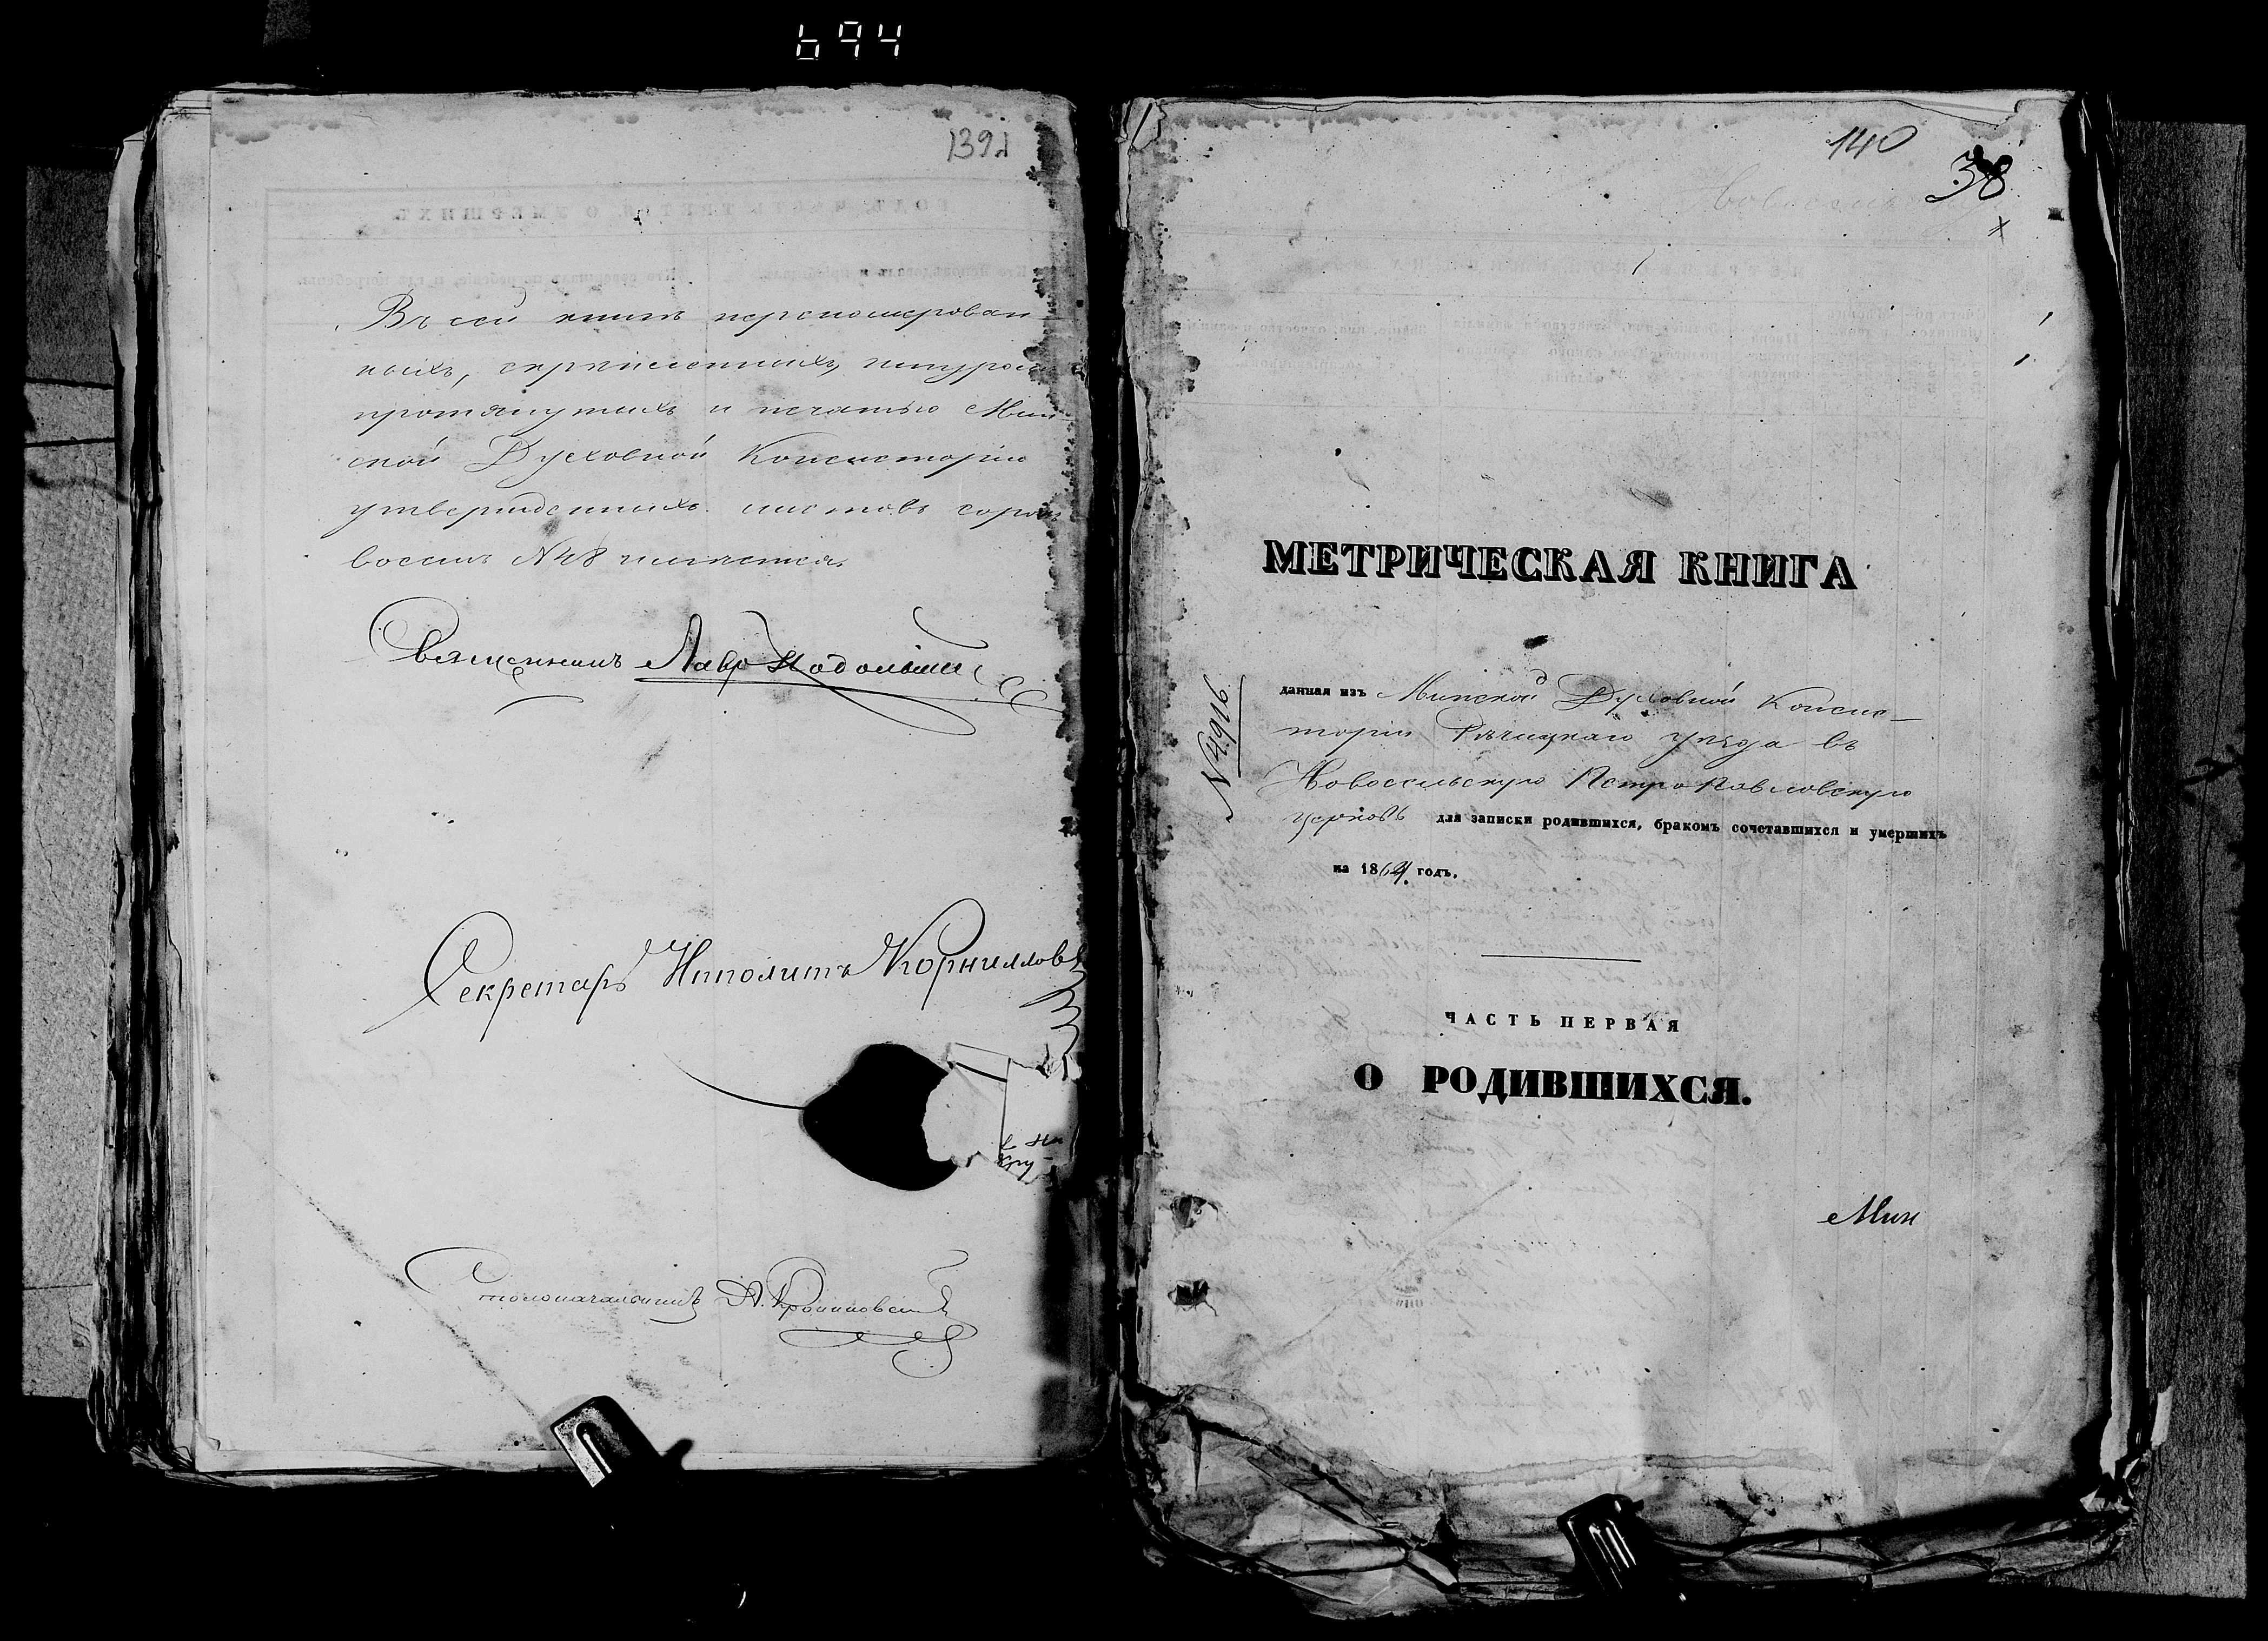 694
139
Въ сей книгѣ перенумерован-
ныхъ, скрѣпленныхъ, шнуромъ
протянутыхъ и печатью Мин-
ской Духовной Консисторіи
утвержденныхъ листовъ сорокъ
восемь №48 имѣется
Священникъ Лавр
Секретарь Ипполитъ Корниловъ
Столоначальникъ
140
38
МЕТРИЧЕСКАЯ КНИГА
№4916
данная изъ Минской Духовной Консис-
торіи Рѣчицкаго уѣзда въ
Новосельскую Петропавловскую
церковь для записки родившихся, бракомъ сочетавшихся и умершихъ
на 1864 годъ.
ЧАСТЬ ПЕРВАЯ
О РОДИВШИХСЯ.
Мин